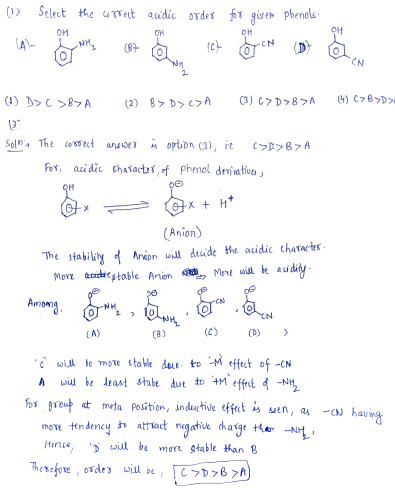 (1) Select the correct acidic order for given phenols.
(A)- OH NH2 (B)- OH NH2 (C)- OH CN (D)- OH CN
(1) D > C > B > A (2) B > D > C > A (3) C > D > B > A (4) C > B > D >
Soln. The correct answer is option (3), ie C > D > B > A
For, acidic character, of phenol derivatives,
OH X ⇌ O⊖ X + H+
(Anion)
The stability of Anion will decide the acidic character.
More stable Anion ⇒ More will be acidity.
Among, O⊖ NH2 , O⊖ NH2 , O⊖ CN , O⊖ CN
(A) (B) (C) (D) ,
'C' will be more stable due to '-M' effect of -CN
A will be least stabe due to '+M' effect of -NH2
For group at meta position, inductive effect is seen, as -CN having
more tendency to attract negative charge than -NH2,
Hence, 'D' will be more stable than B
Therefore, order will be, C > D > B > A